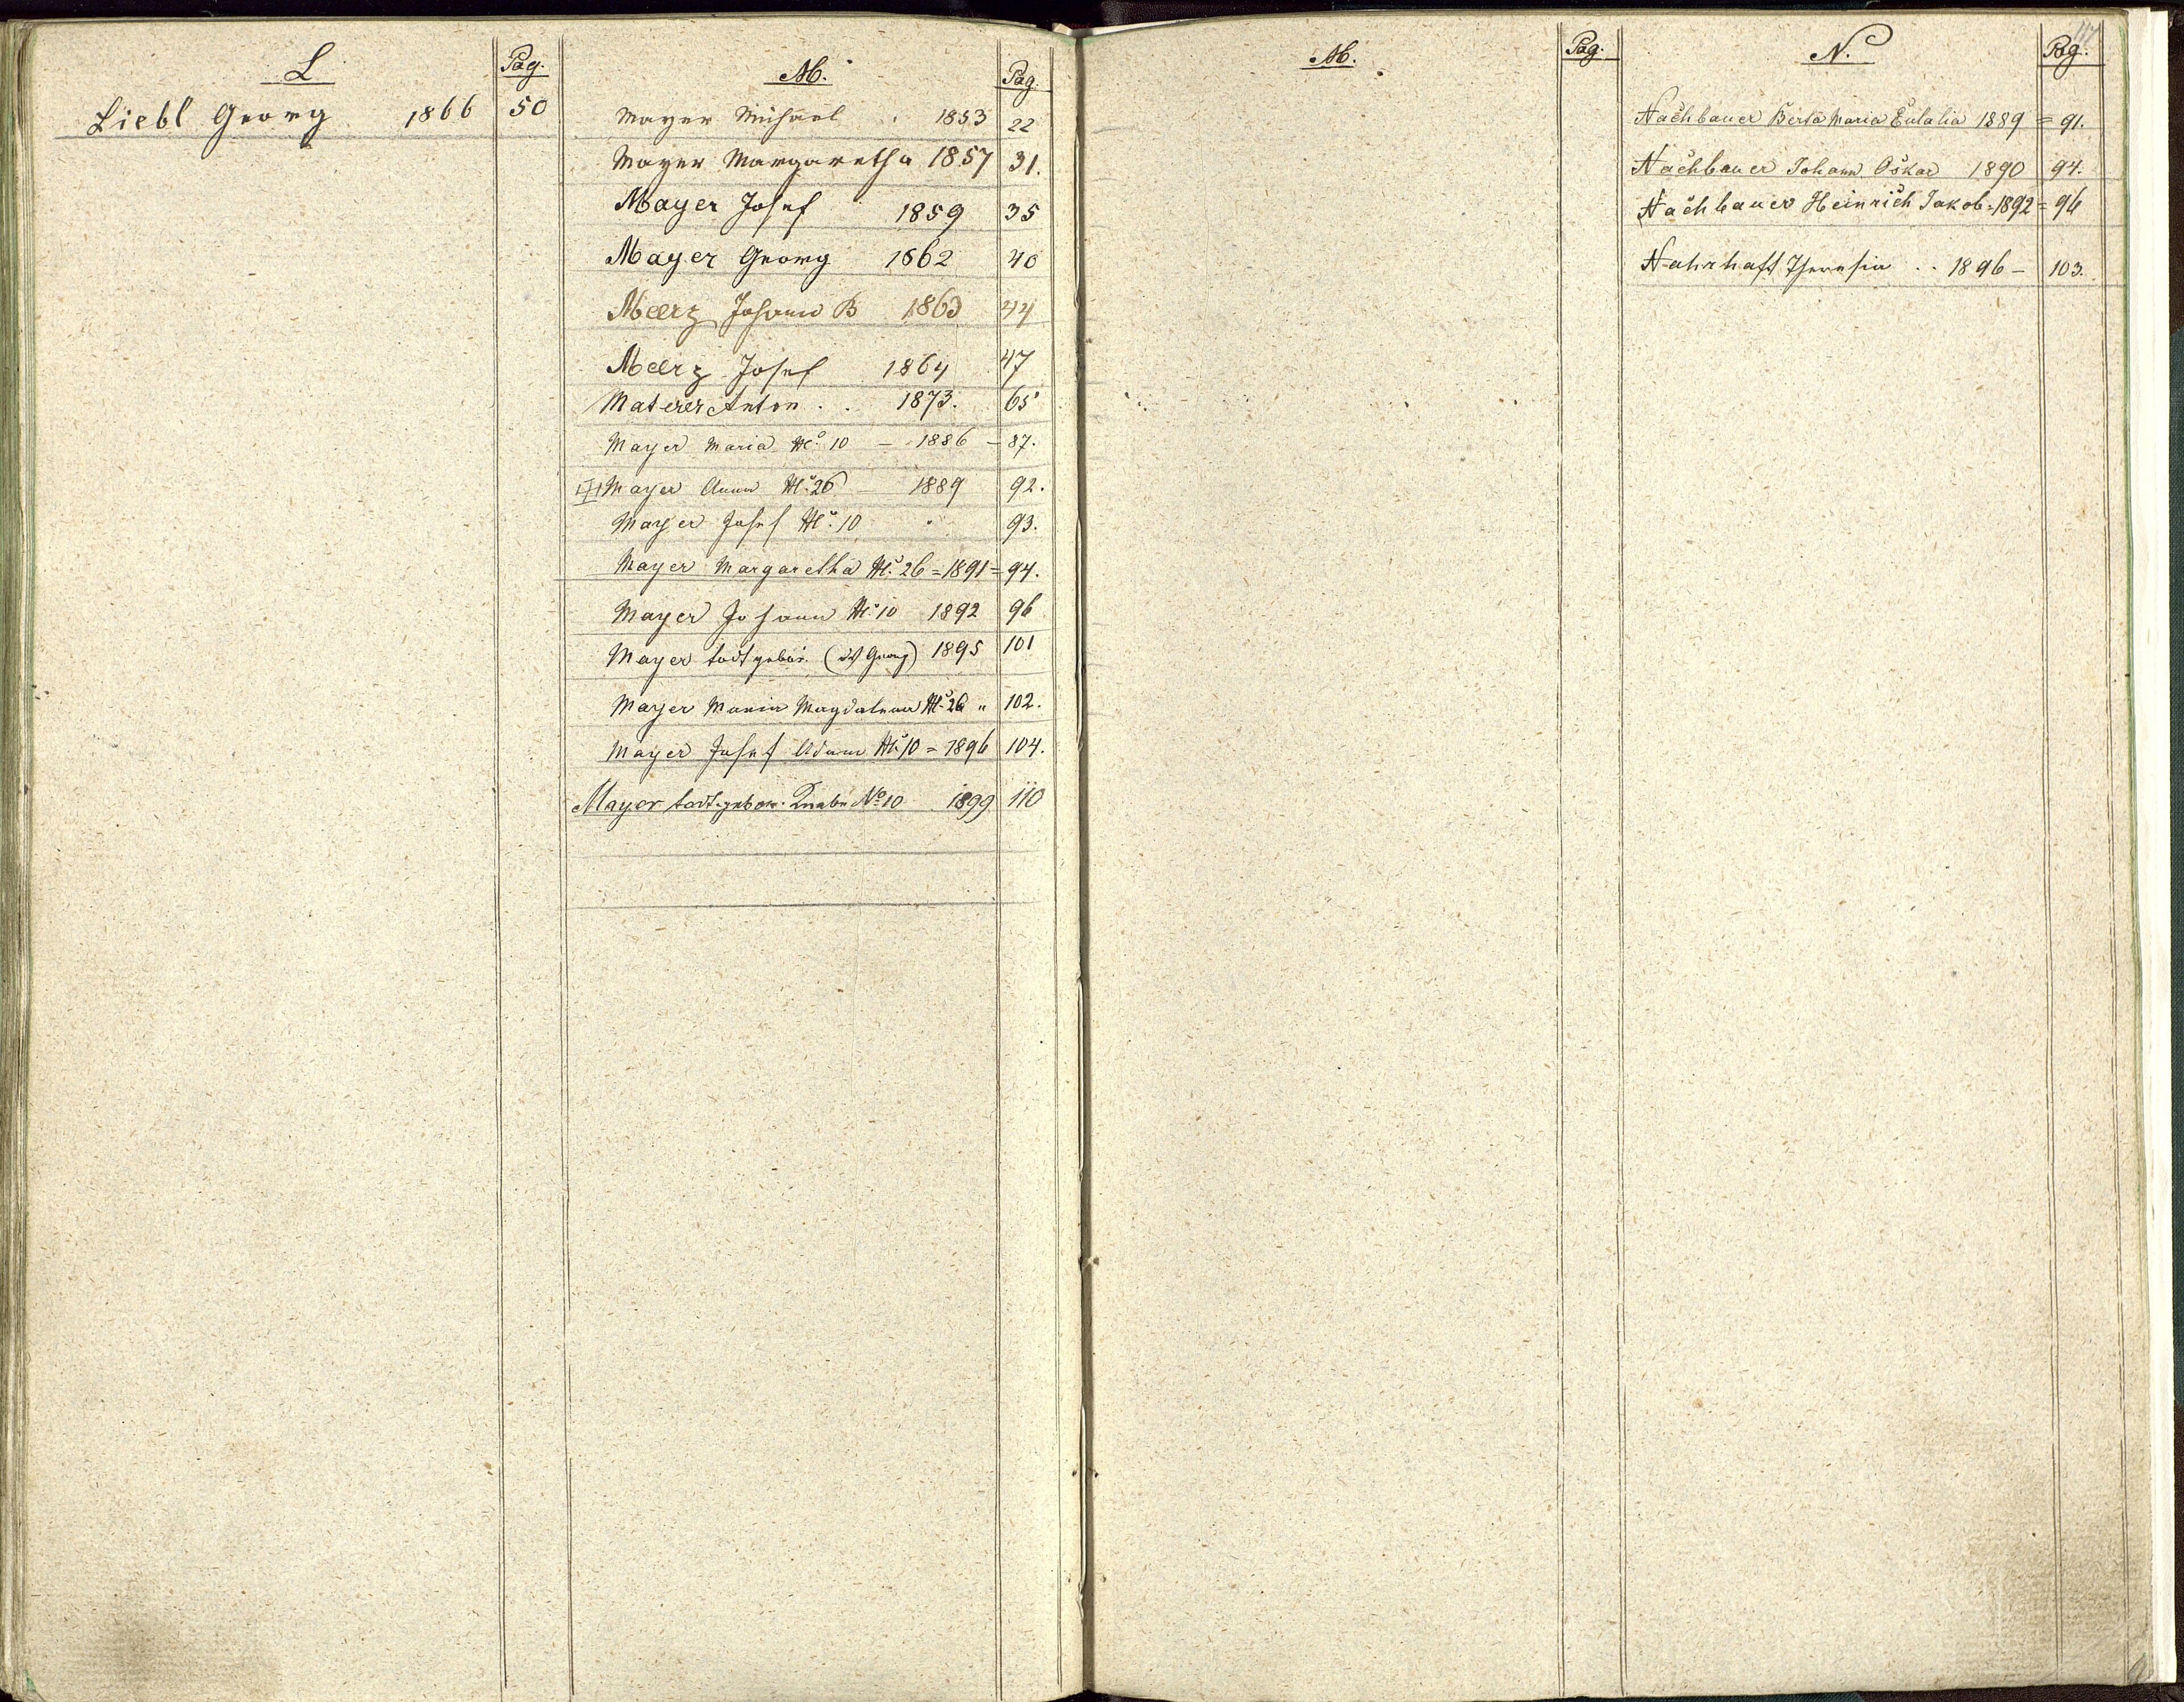 L
Pag.
Liebl Georg 1866 50
M.
Pag.
Mayer Michael . 1853 22
Mayer Margaretha 1857 31.
Mayer Josef 1859 35
Mayer Georg 1862 40
Meerz Johann B 1863 44
Meerz Josef 1864 47
Materer Anton . . 1873. 65
Mayer Maria N.º 10 – 1886 – 87.
Mayer Anna N.º 26 – 1889 92.
Mayer Josef N.º 10 " 93.
Mayer Margaretha N.º 26 = 1891 = 94.
Mayer Johann N.º 10 1892 96
Mayer todtgebor. (des Georg) 1895 101
Mayer Maria Magdalena N.º 26 " 102.
Mayer Josef Adam N.º 10 = 1896 104.
Mayer todtgebor. Knabe Nº 10 1899 110
M.
Pag.
N.
Pag.
117
Nachbauer Berta Maria Eulalia 1889 = 91.
Nachbauer Johann Oskar 1890 94.
Nachbauer Heinrich Jakob = 1892 = 96
Nahrhaft Theresia . . 1896 – 103.